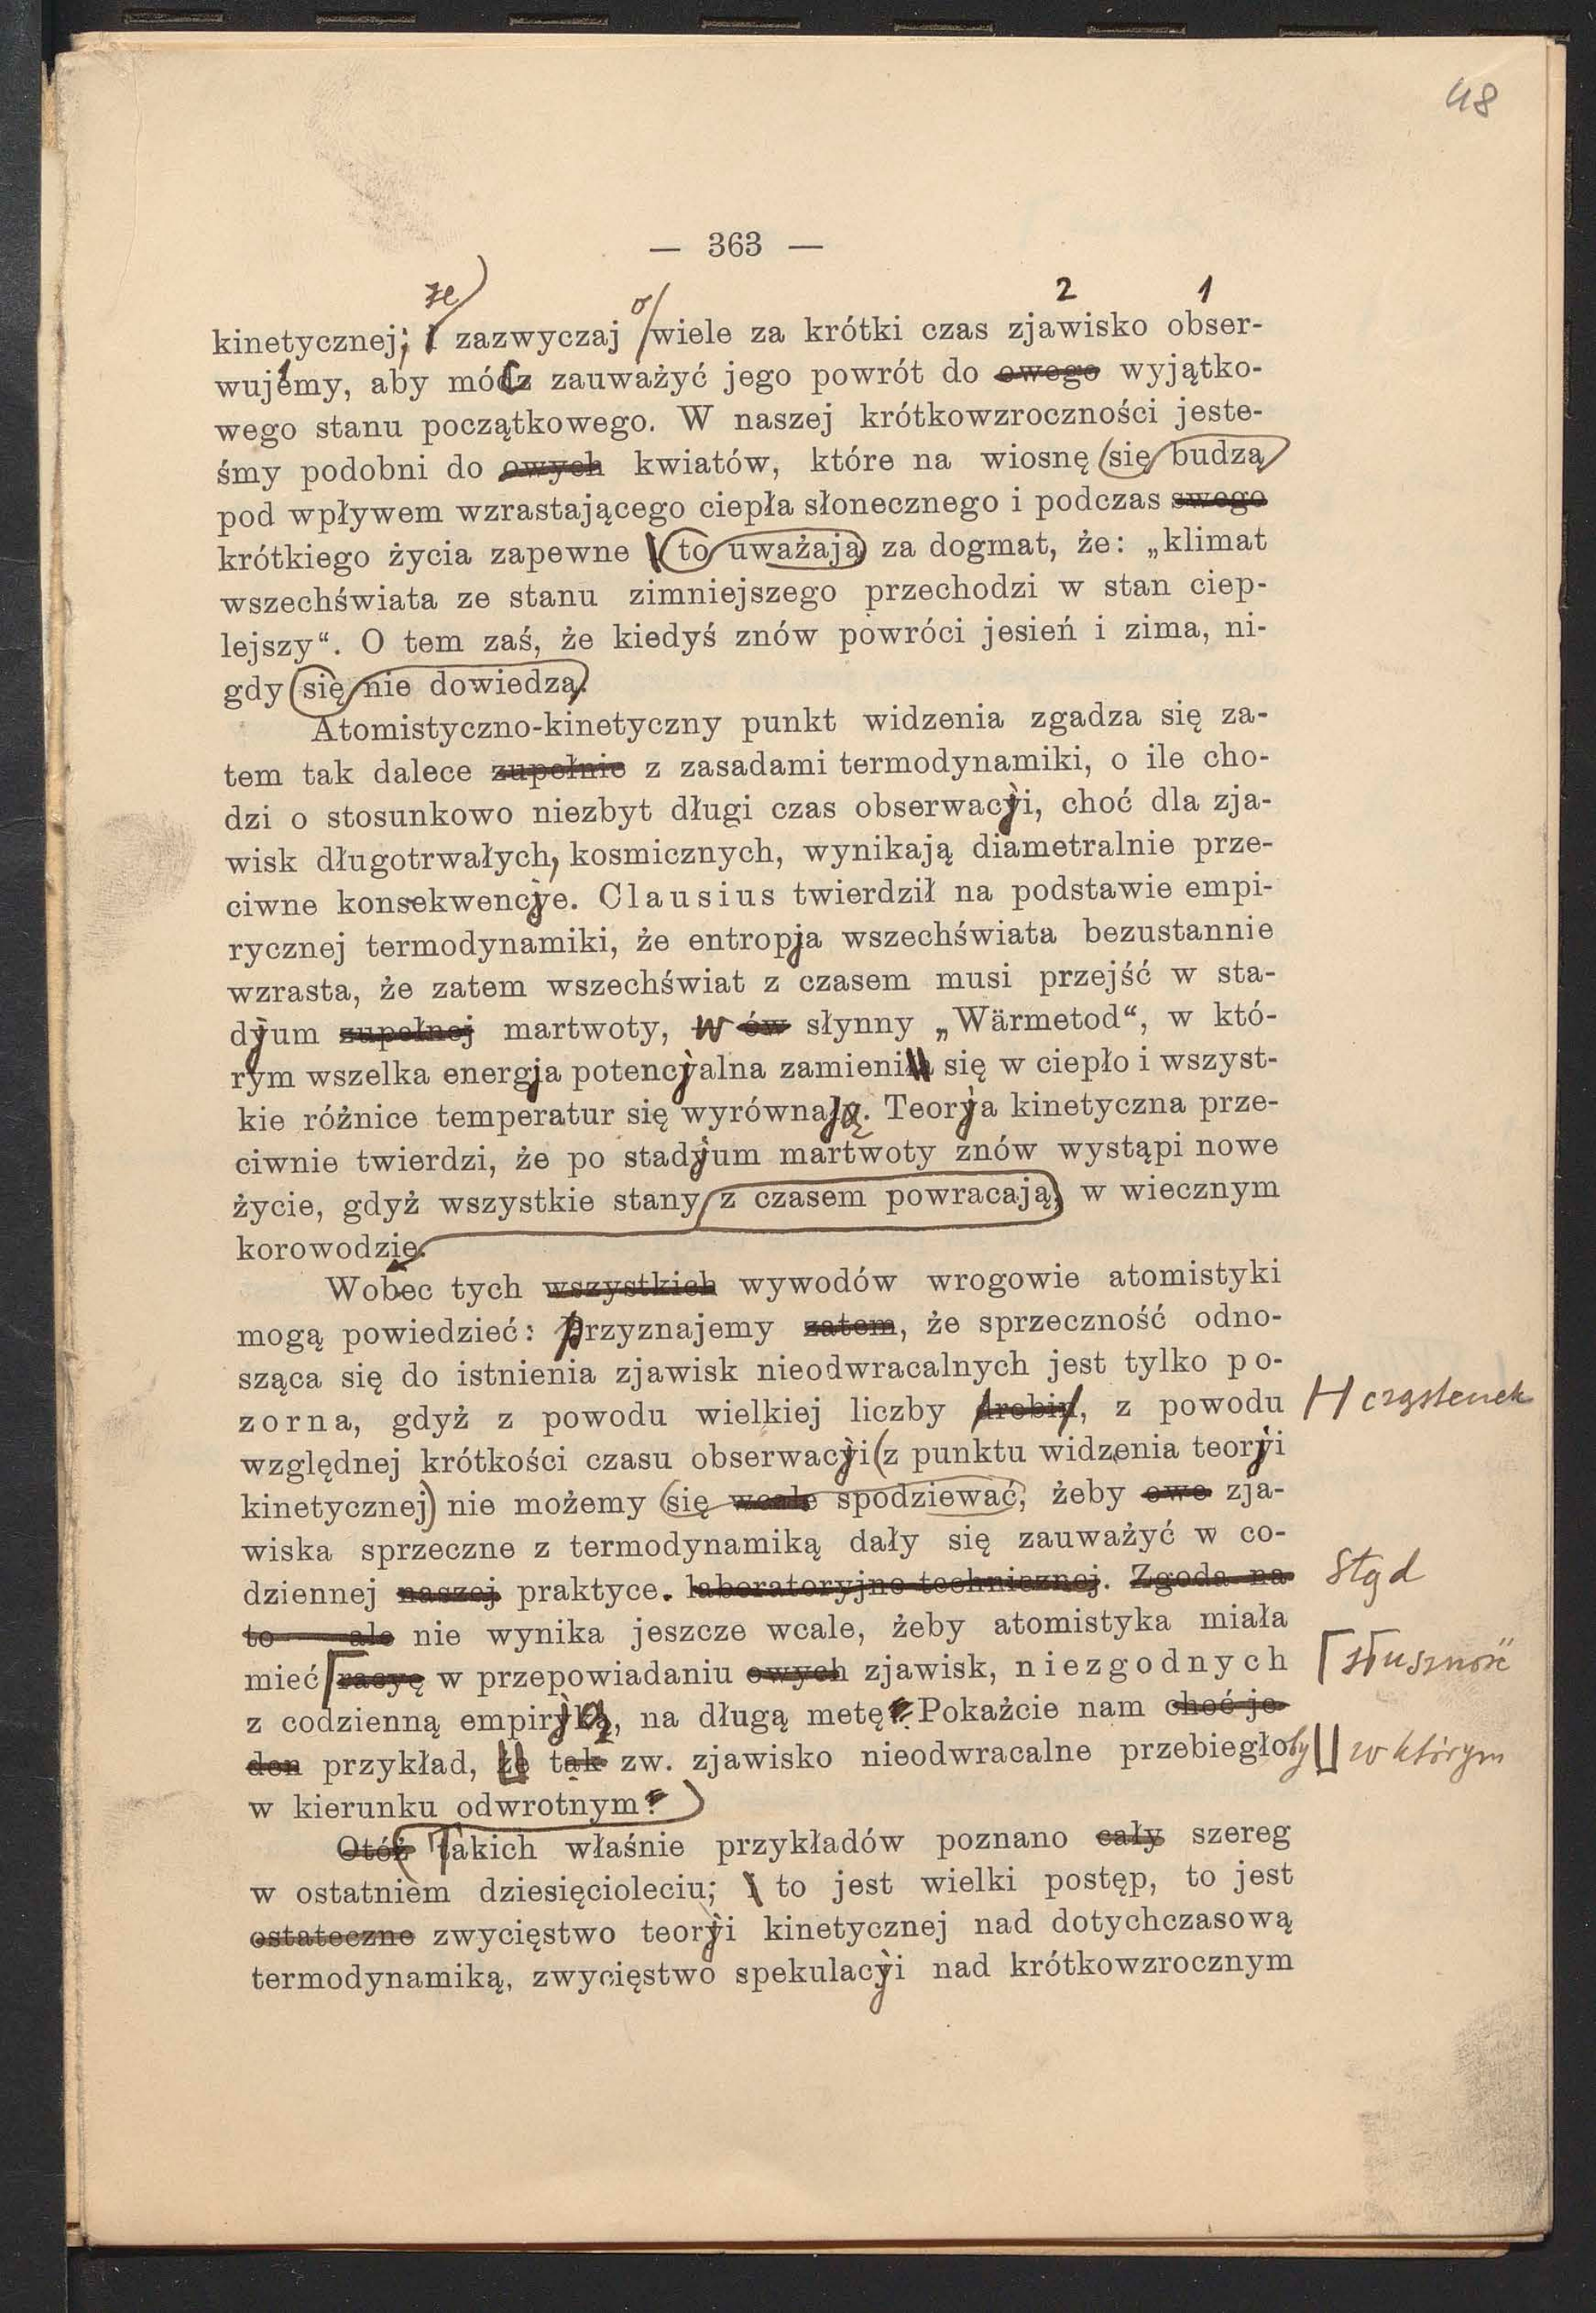 48
— 363 —
że
o/
2 1
kinetycznej; i zazwyczaj wiele za krótki czas zjawisko obser-
wujemy, aby módz zauważyć jego powrót do owego wyjątko-
wego stanu początkowego. W naszej krótkowzroczności jeste-
śmy podobni do owych kwiatów, które na wiosnę się budzą
pod wpływem wzrastającego ciepła słonecznego i podczas swego
krótkiego życia zapewne to uważają za dogmat, że: „klimat
wszechświata ze stanu zimniejszego przechodzi w stan ciep-
lejszy“. O tem zaś, że kiedyś znów powróci jesień i zima, ni-
gdy się nie dowiedzą.
Atomistyczno-kinetyczny punkt widzenia zgadza się za-
tem tak dalece zupełnie z zasadami termodynamiki, o ile cho-
dzi o stosunkowo niezbyt długi czas obserwacyi, choć dla zja-
wisk długotrwałych, kosmicznych, wynikają diametralnie prze-
ciwne konsekwencye. Clausius twierdził na podstawie empi-
rycznej termodynamiki, że entropja wszechświata bezustannie
wzrasta, że zatem wszechświat z czasem musi przejść w sta-
dyum zupełnej martwoty, w ów słynny „Wärmetod“, w któ-
rym wszelka energja potencyalna zamieni się w ciepło i wszyst-
kie różnice temperatur się wyrównają. Teorya kinetyczna prze-
ciwnie twierdzi, że po stadyum martwoty znów wystąpi nowe
życie, gdyż wszystkie stany z czasem powracają, w wiecznym
korowodzie.
Wobec tych wszystkich wywodów wrogowie atomistyki
mogą powiedzieć: przyznajemy zatem, że sprzeczność odno-
sząca się do istnienia zjawisk nieodwracalnych jest tylko po-
zorna, gdyż z powodu wielkiej liczby drobin, z powodu cząstenek
względnej krótkości czasu obserwacyi (z punktu widzenia teoryi
kinetycznej) nie możemy się wcale spodziewać, żeby owe zja-
wiska sprzeczne z termodynamiką dały się zauważyć w co-
dziennej naszej praktyce. laboratoryjno technicznej. Zgoda na Stąd
to — ale nie wynika jeszcze wcale, żeby atomistyka miała
mieć racyę w przepowiadaniu owych zjawisk, niezgodnych słuszność
z codzienną empiryką, na długą metę. Pokażcie nam choć je-
den przykład, że tak zw. zjawisko nieodwracalne przebiegłoby w którym
w kierunku odwrotnym?
Otóż Takich właśnie przykładów poznano cały szereg
w ostatniem dziesięcioleciu; i to jest wielki postęp, to jest
ostateczne zwycięstwo teoryi kinetycznej nad dotychczasową
termodynamiką, zwycięstwo spekulacyi nad krótkowzrocznym